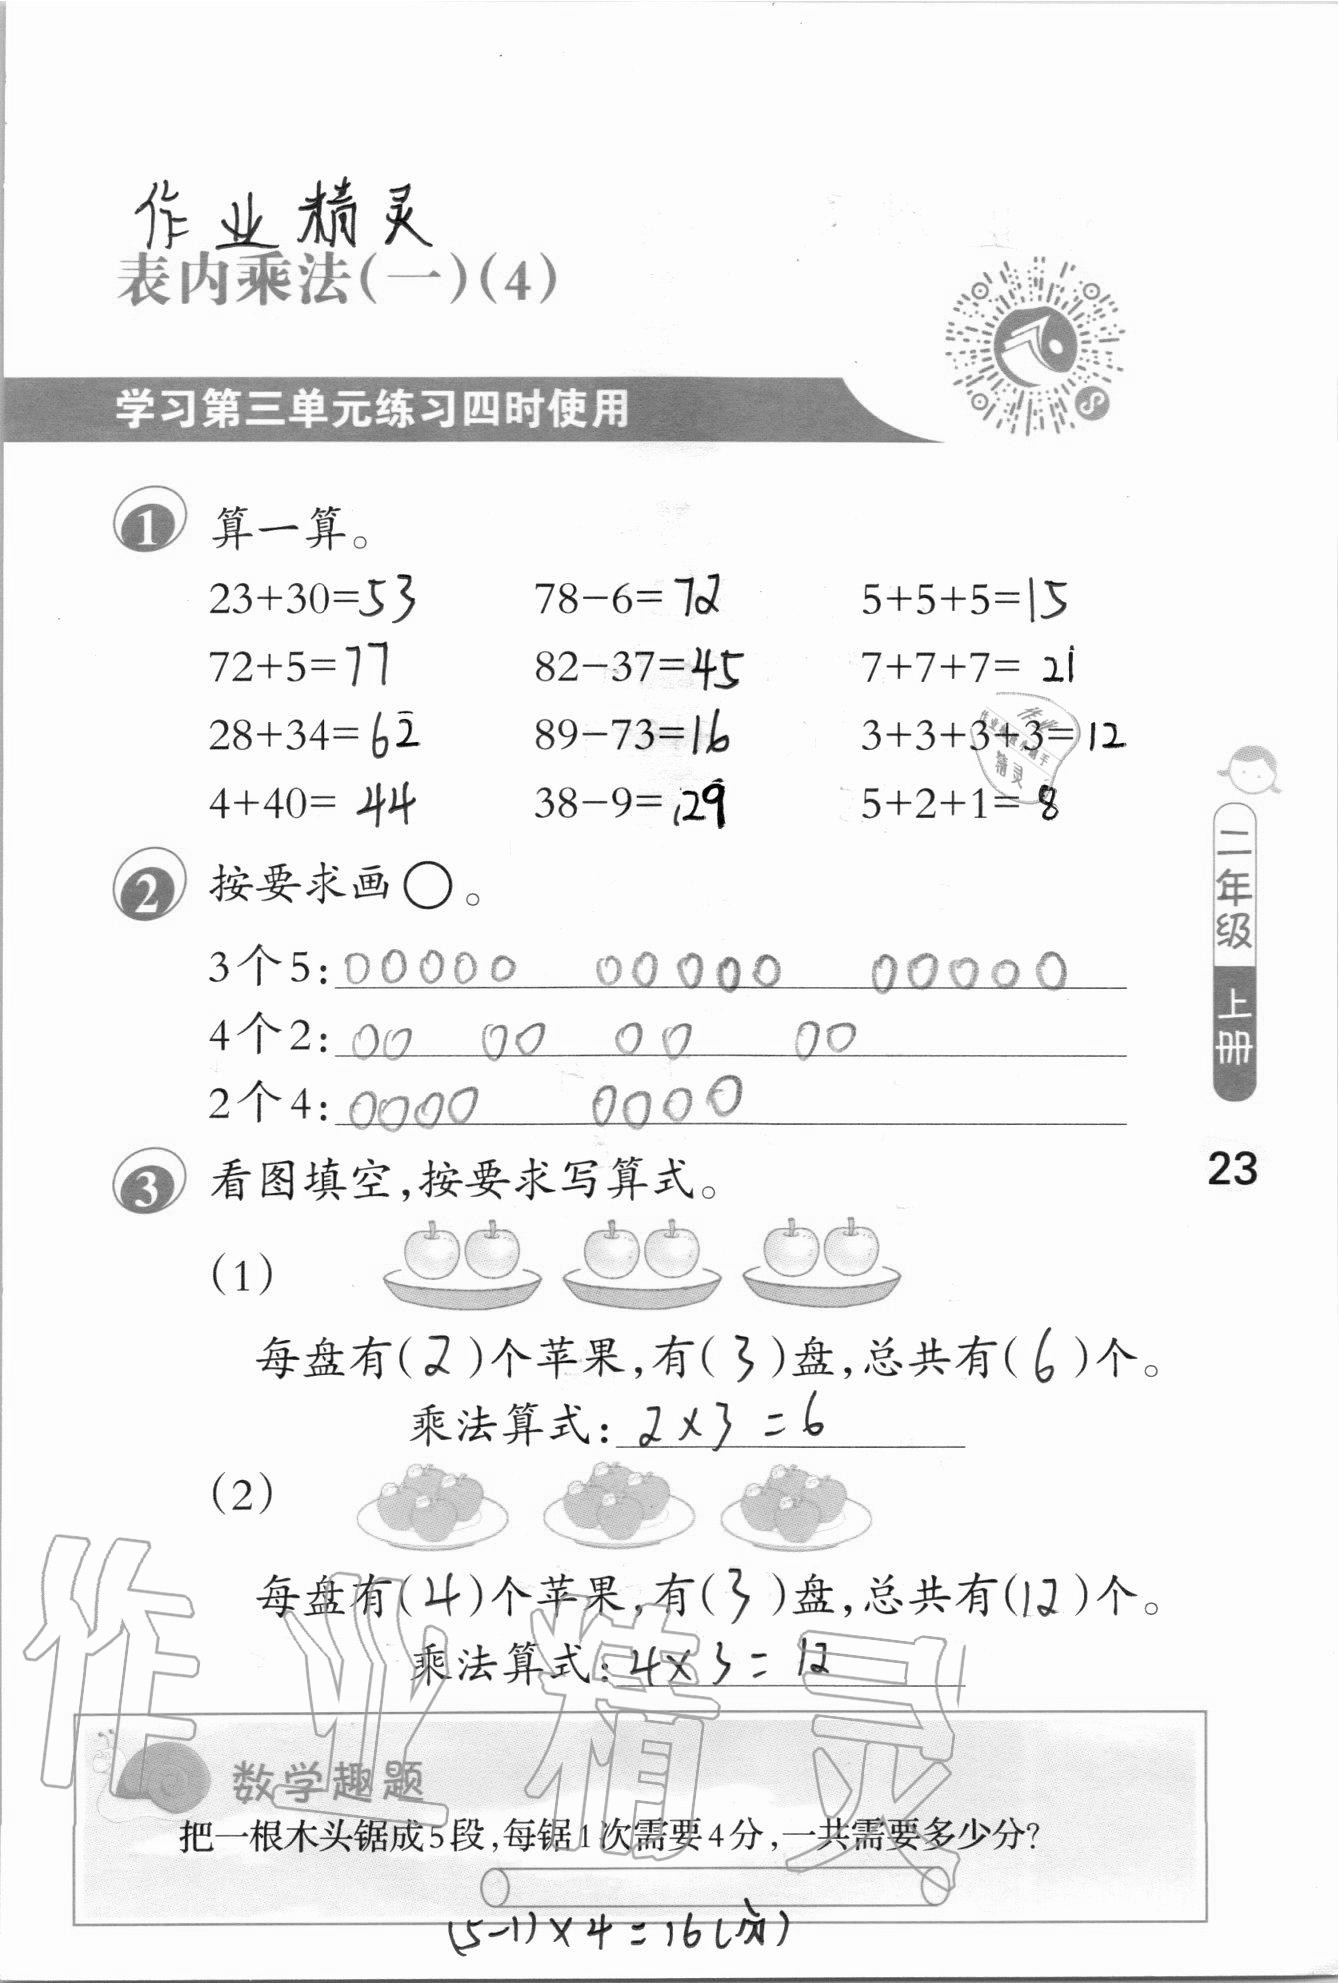 作业精灵
表内乘法(一)(4)
学习第三单元练习四时使用
1 算一算。
23+30=53 78-6=72 5+5+5=15
72+5=77 82-37=45 7+7+7=21
28+34=62 89-73=16 3+3+3+3=12
4+40=44 38-9=29 5+2+1=8
作业
精灵
2 按要求画○。
3个5:○○○○○ ○○○○○ ○○○○○
4个2:○○ ○○ ○○ ○○
2个4:○○○○ ○○○○
二年级 上册
23
3 看图填空,按要求写算式。
(1)
每盘有(2)个苹果,有(3)盘,总共有(6)个。
乘法算式:2×3=6
(2)
每盘有(4)个苹果,有(3)盘,总共有(12)个。
乘法算式:4×3=12
作业精灵
数学趣题
把一根木头锯成5段,每锯1次需要4分,一共需要多少分?
(5-1)×4=16(分)